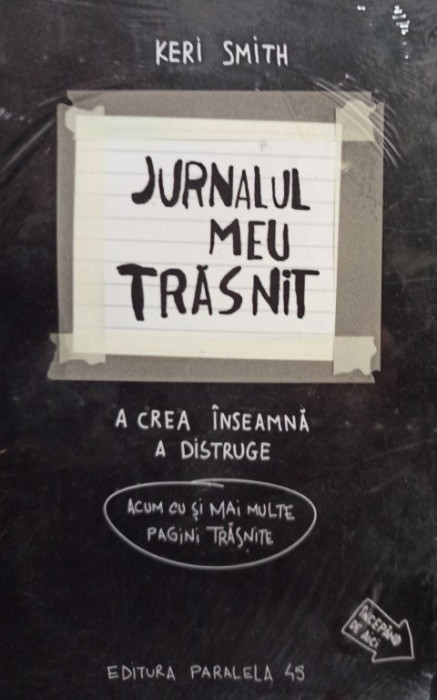 KERI SMITH
JURNALUL
MEU
TRĂSNIT
A CREA ÎNSEAMNĂ
A DISTRUGE
ACUM CU ȘI MAI MULTE
PAGINI TRĂSNITE
ÎNCEPÂND
DE AICI
EDITURA PARALELA 45